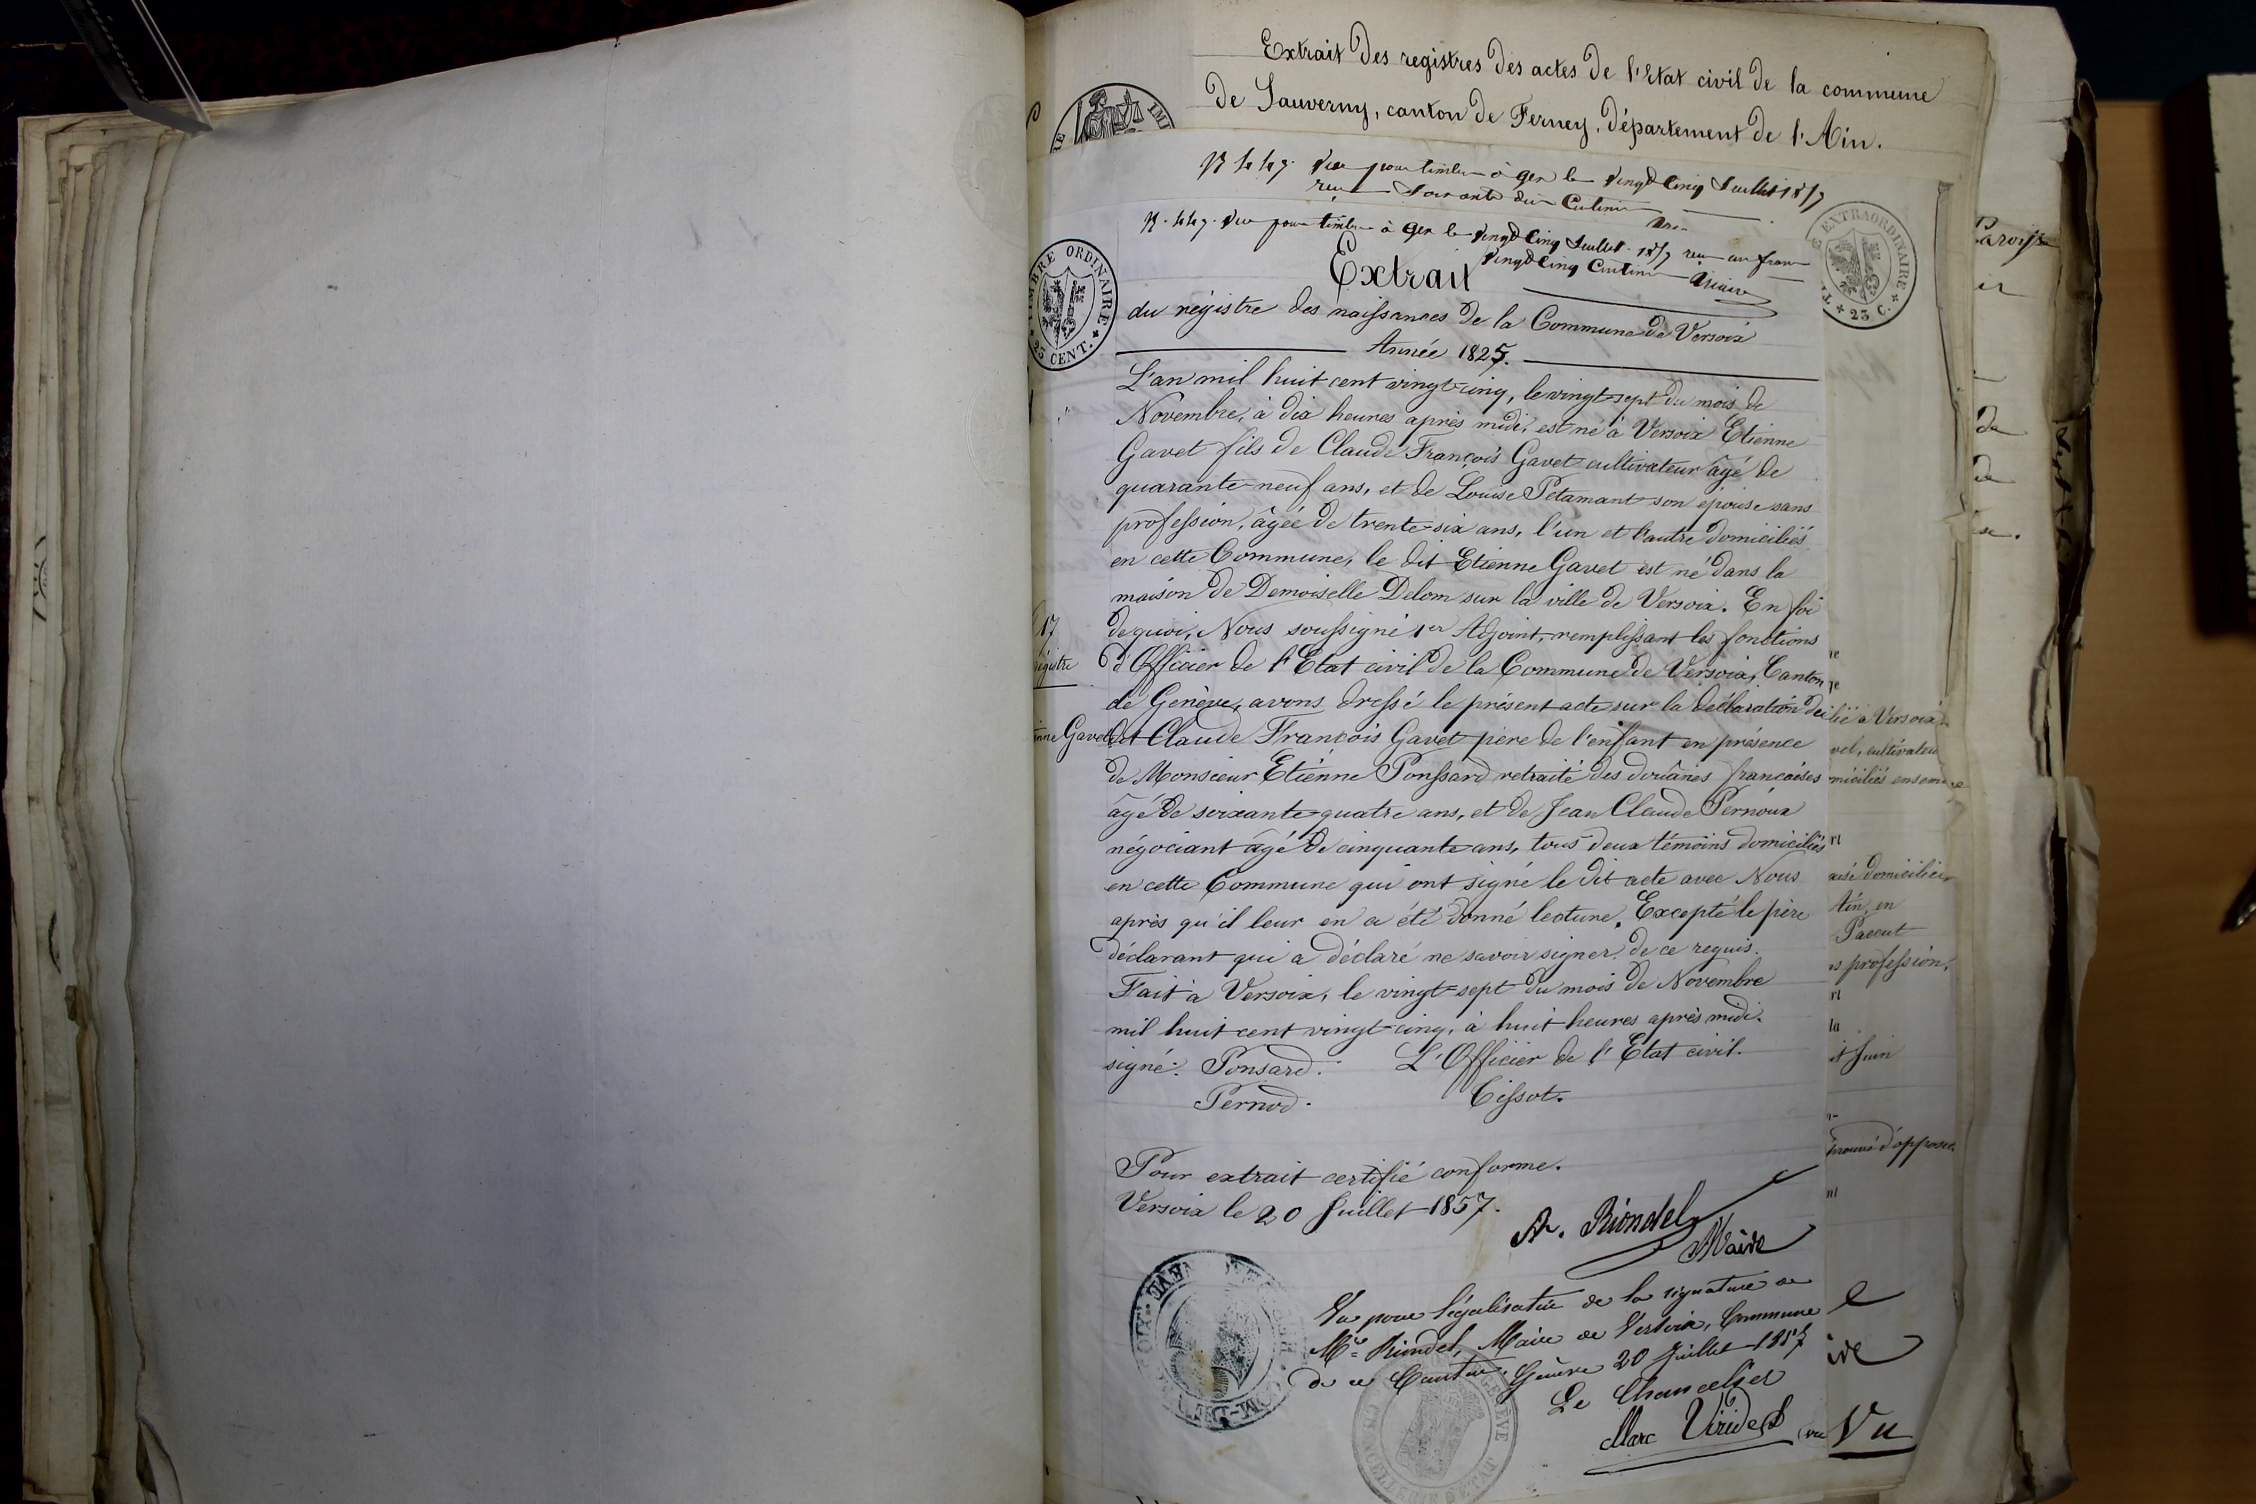 Extrait des registres des actes de l'Etat civil de la commune
de Sauverny, canton de Ferney, département de l'Ain.
Vu pour timbre à Gex le vingt cinq Juillet 1857
reçu soixante dix Centimes
N. 447. Vu pour timbre à Gex le vingt cinq Juillet 1857 reçu un franc
vingt cinq Centimes
TIMBRE ORDINAIRE
25 CENT.
EXTRAORDINAIRE
25 C.
Extrait
du régistre des naissances de la Commune de Versoix
Année 1825.
L'an mil huit cent vingt-cinq, le vingt-sept du mois de
Novembre, à dix heures après midi, est né à Versoix Etienne
Gavet fils de Claude François Gavet cultivateur âgé de
quarante-neuf ans, et de Louise Pétamant son épouse sans
profession, âgée de trente-six ans, l'un et l'autre domiciliés
en cette Commune, le dit Etienne Gavet est né dans la
maison de Demoiselle Delom sur la ville de Versoix. En foi
de quoi, Nous soussigné 1er Adjoint, remplissant les fonctions
d'Officier de l'Etat civil de la Commune de Versoix, Canton
de Genève, avons dressé le présent acte sur la déclaration du
dit Claude François Gavet père de l'enfant en présence
de Monsieur Etienne Ponssard retraité des douânes françaises
âgé de soixante-quatre ans, et de Jean Claude Pernoux
négociant âgé de cinquante ans, tous deux témoins domiciliés
en cette Commune qui ont signé le dit acte avec Nous
après qu'il leur en a été donné lecture. Excepté le père
déclarant qui a déclaré ne savoir signer de ce requis.
Fait à Versoix, le vingt-sept du mois de Novembre
mil huit cent vingt-cinq, à huit heures après midi.
signé: Ponsard. L'Officier de l'Etat civil.
Pernod. Tissot.
17
Gavet
Pour extrait certifié conforme.
Versoix le 20 Juillet 1857.
A. Riondel
Maire
Vu pour légalisation de la signature de
Mr. Riondel, Maire de Versoix, Commune
de ce Canton. Genève 20 Juillet 1857
Le Chancelier
Marc Viridet
Vu
à Versoix
cultivateur
domicilié
Ain, en
profession,
la
Juin
d'opposer